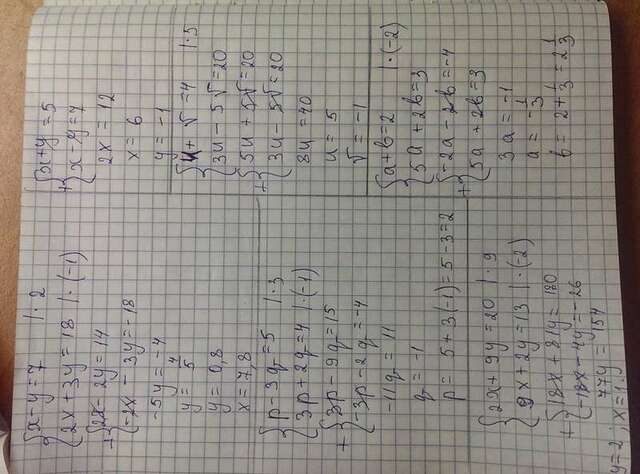 {x-y=7 |·2
{2x+3y=18 |·(-1)
+{2x-2y=14
{-2x-3y=-18
-5y=-4
y=4/5
y=0,8
x=7,8
{p-3q=5 |·3
{3p+2q=4 |·(-1)
+{3p-9q=15
{-3p-2q=-4
-11q=11
q=-1
p=5+3(-1)=5-3=2
{2x+9y=20 |·9
{9x+2y=13 |·(-2)
+{18x+81y=180
{-18x-4y=-26
77y=154
y=2; x=1.
+{x+y=5
{x-y=7
2x=12
x=6
y=-1
{u+v=4 |·5
{3u-5v=20
+{5u+5v=20
{3u-5v=20
8u=40
u=5
v=-1
{a+b=2 |·(-2)
{5a+2b=3
+{-2a-2b=-4
{5a+2b=3
3a=-1
a=-1/3
b=2+1/3=2 1/3